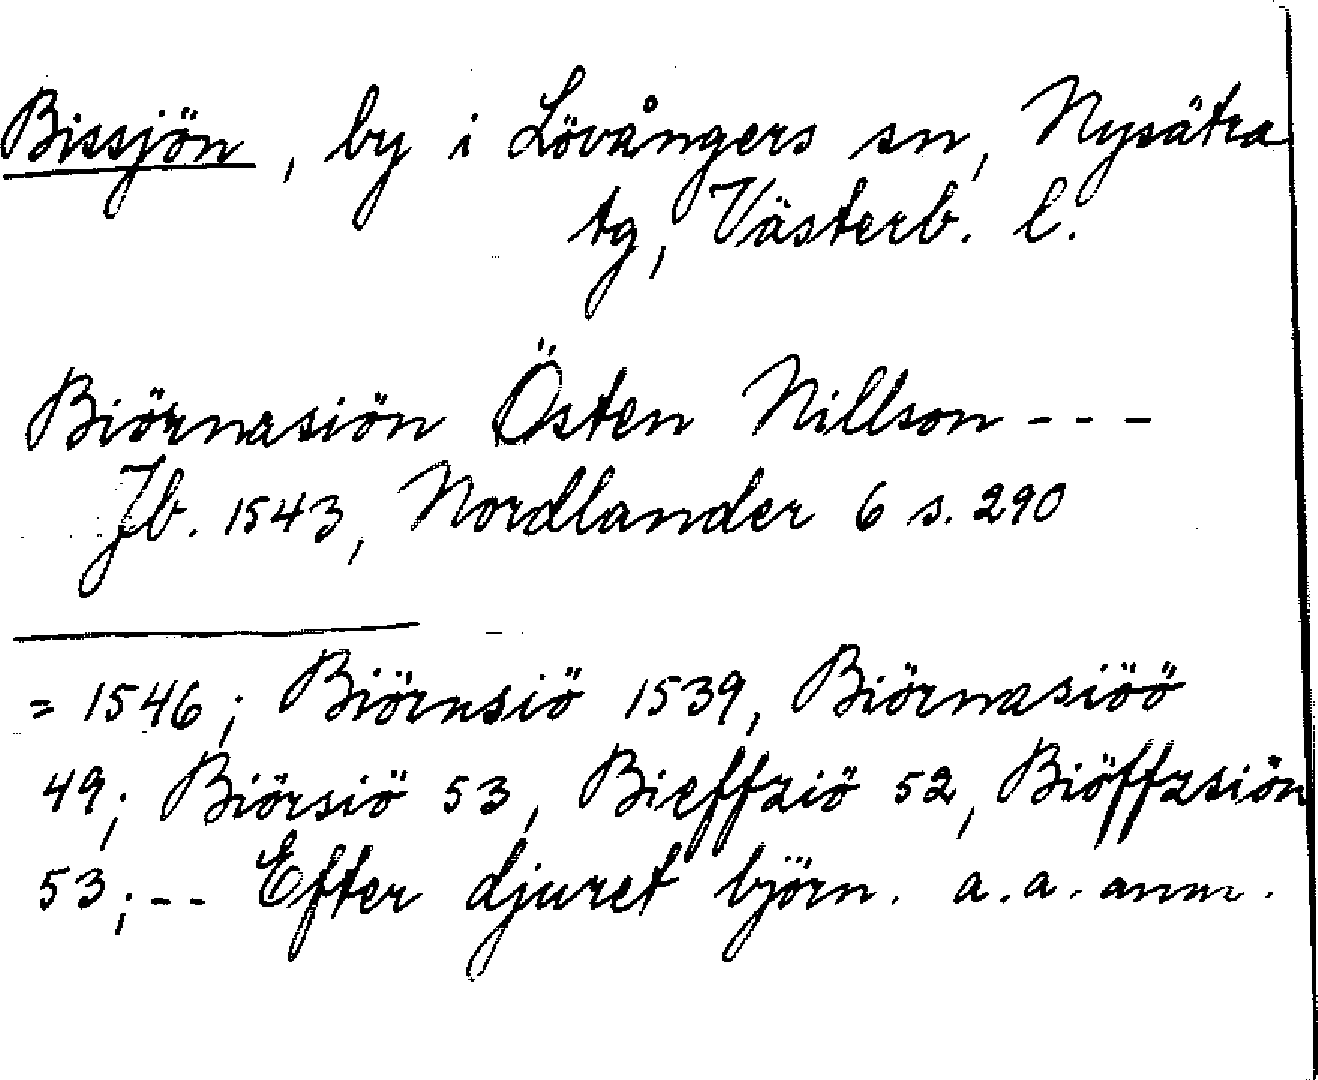 Bissjön, by i Lövångers sn, Nysätra
tg, Västerb. l.
Biörnæsiön Östen Nillson - - -
Jb. 1543, Nordlander 6 s. 290
= 1546; Biörnsiö 1539, Biörnæsiöö
49; Biörsiö 53, Bieffziö 52, Biöffzsiön
53; - - Efter djuret björn. a. a. anm.